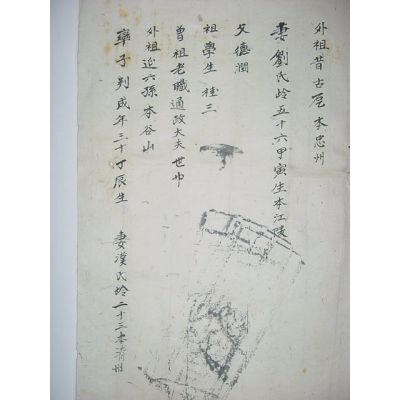 外祖昔古居本忠州
妻劉氏岭五十六甲寅生本江陵
父德潤
祖學生 桂三
曾祖老職通政大夫 世
外祖 六孫 本谷山
率子 成年三十丁辰生 妻漢氏岭二十三本清州